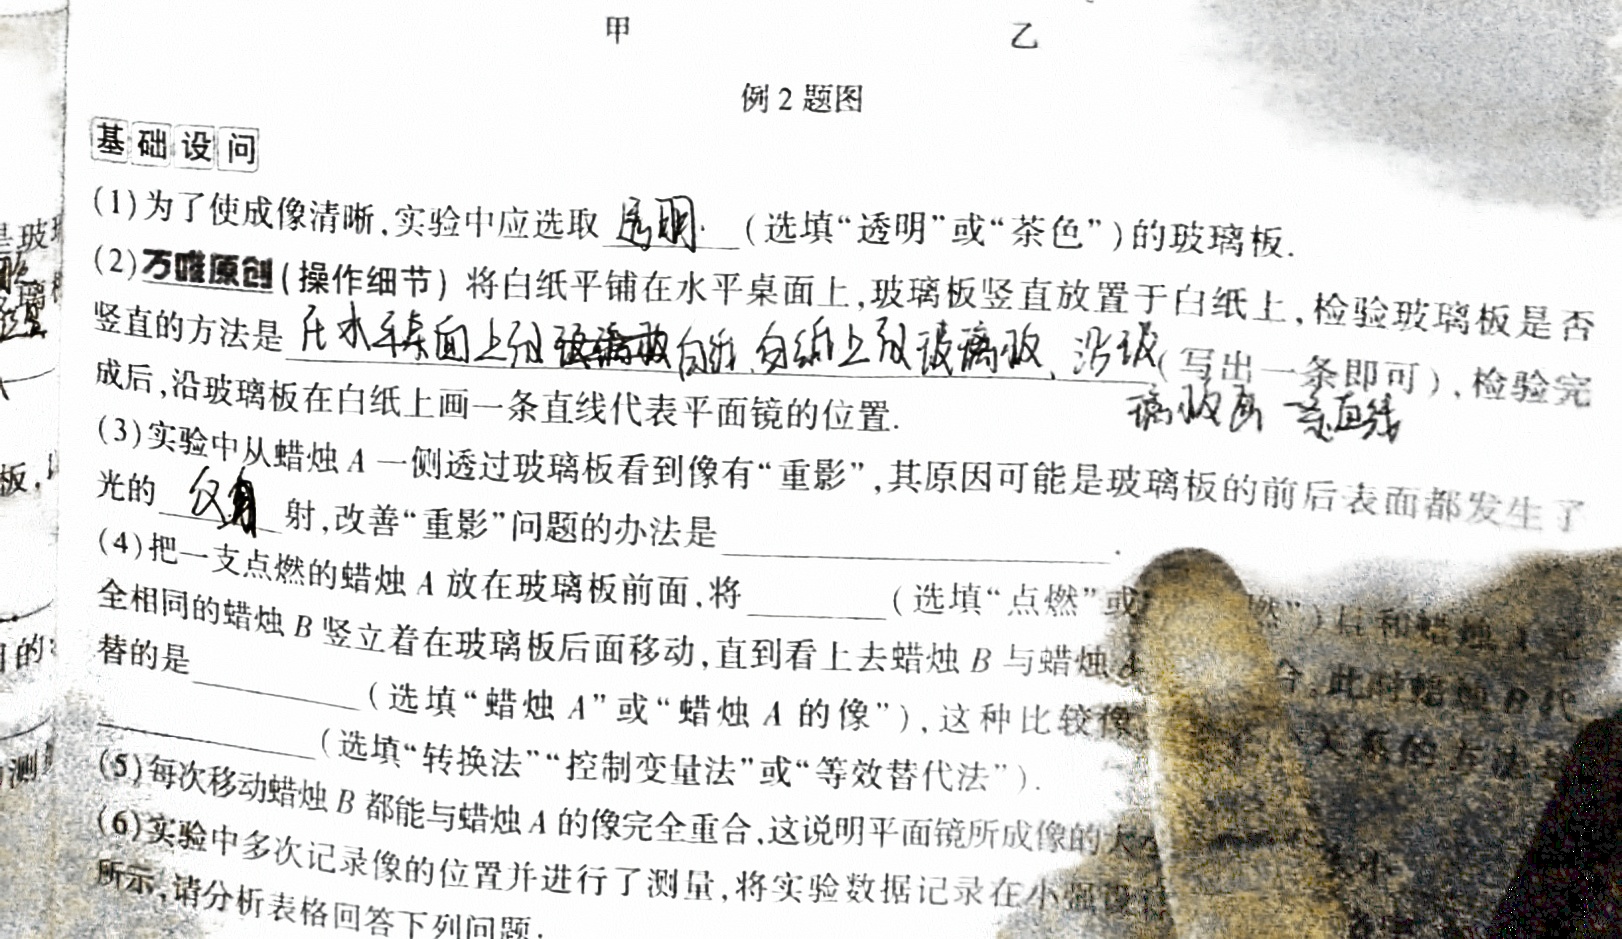 甲 乙
例2题图
基础设问
(1)为了使成像清晰,实验中应选取 透明 (选填“透明”或“茶色”)的玻璃板.
(2)万唯原创(操作细节) 将白纸平铺在水平桌面上,玻璃板竖直放置于白纸上,检验玻璃板是否
竖直的方法是 在水平桌面上 白纸上放玻璃板、沿玻 (写出一条即可),检验完
璃板画一条直线
成后,沿玻璃板在白纸上画一条直线代表平面镜的位置.
(3)实验中从蜡烛A一侧透过玻璃板看到像有“重影”,其原因可能是玻璃板的前后表面都发生了
光的 射,改善“重影”问题的办法是 .
(4)把一支点燃的蜡烛A放在玻璃板前面,将 (选填“点燃”或 燃”)后和蜡烛A
全相同的蜡烛B竖立着在玻璃板后面移动,直到看上去蜡烛B与蜡烛 合,此时蜡烛B代
替的是 (选填“蜡烛A”或“蜡烛A的像”),这种比较像 关系的方法是
(选填“转换法”“控制变量法”或“等效替代法”).
(5)每次移动蜡烛B都能与蜡烛A的像完全重合,这说明平面镜所成像的大小
(6)实验中多次记录像的位置并进行了测量,将实验数据记录在小强设
所示,请分析表格回答下列问题.